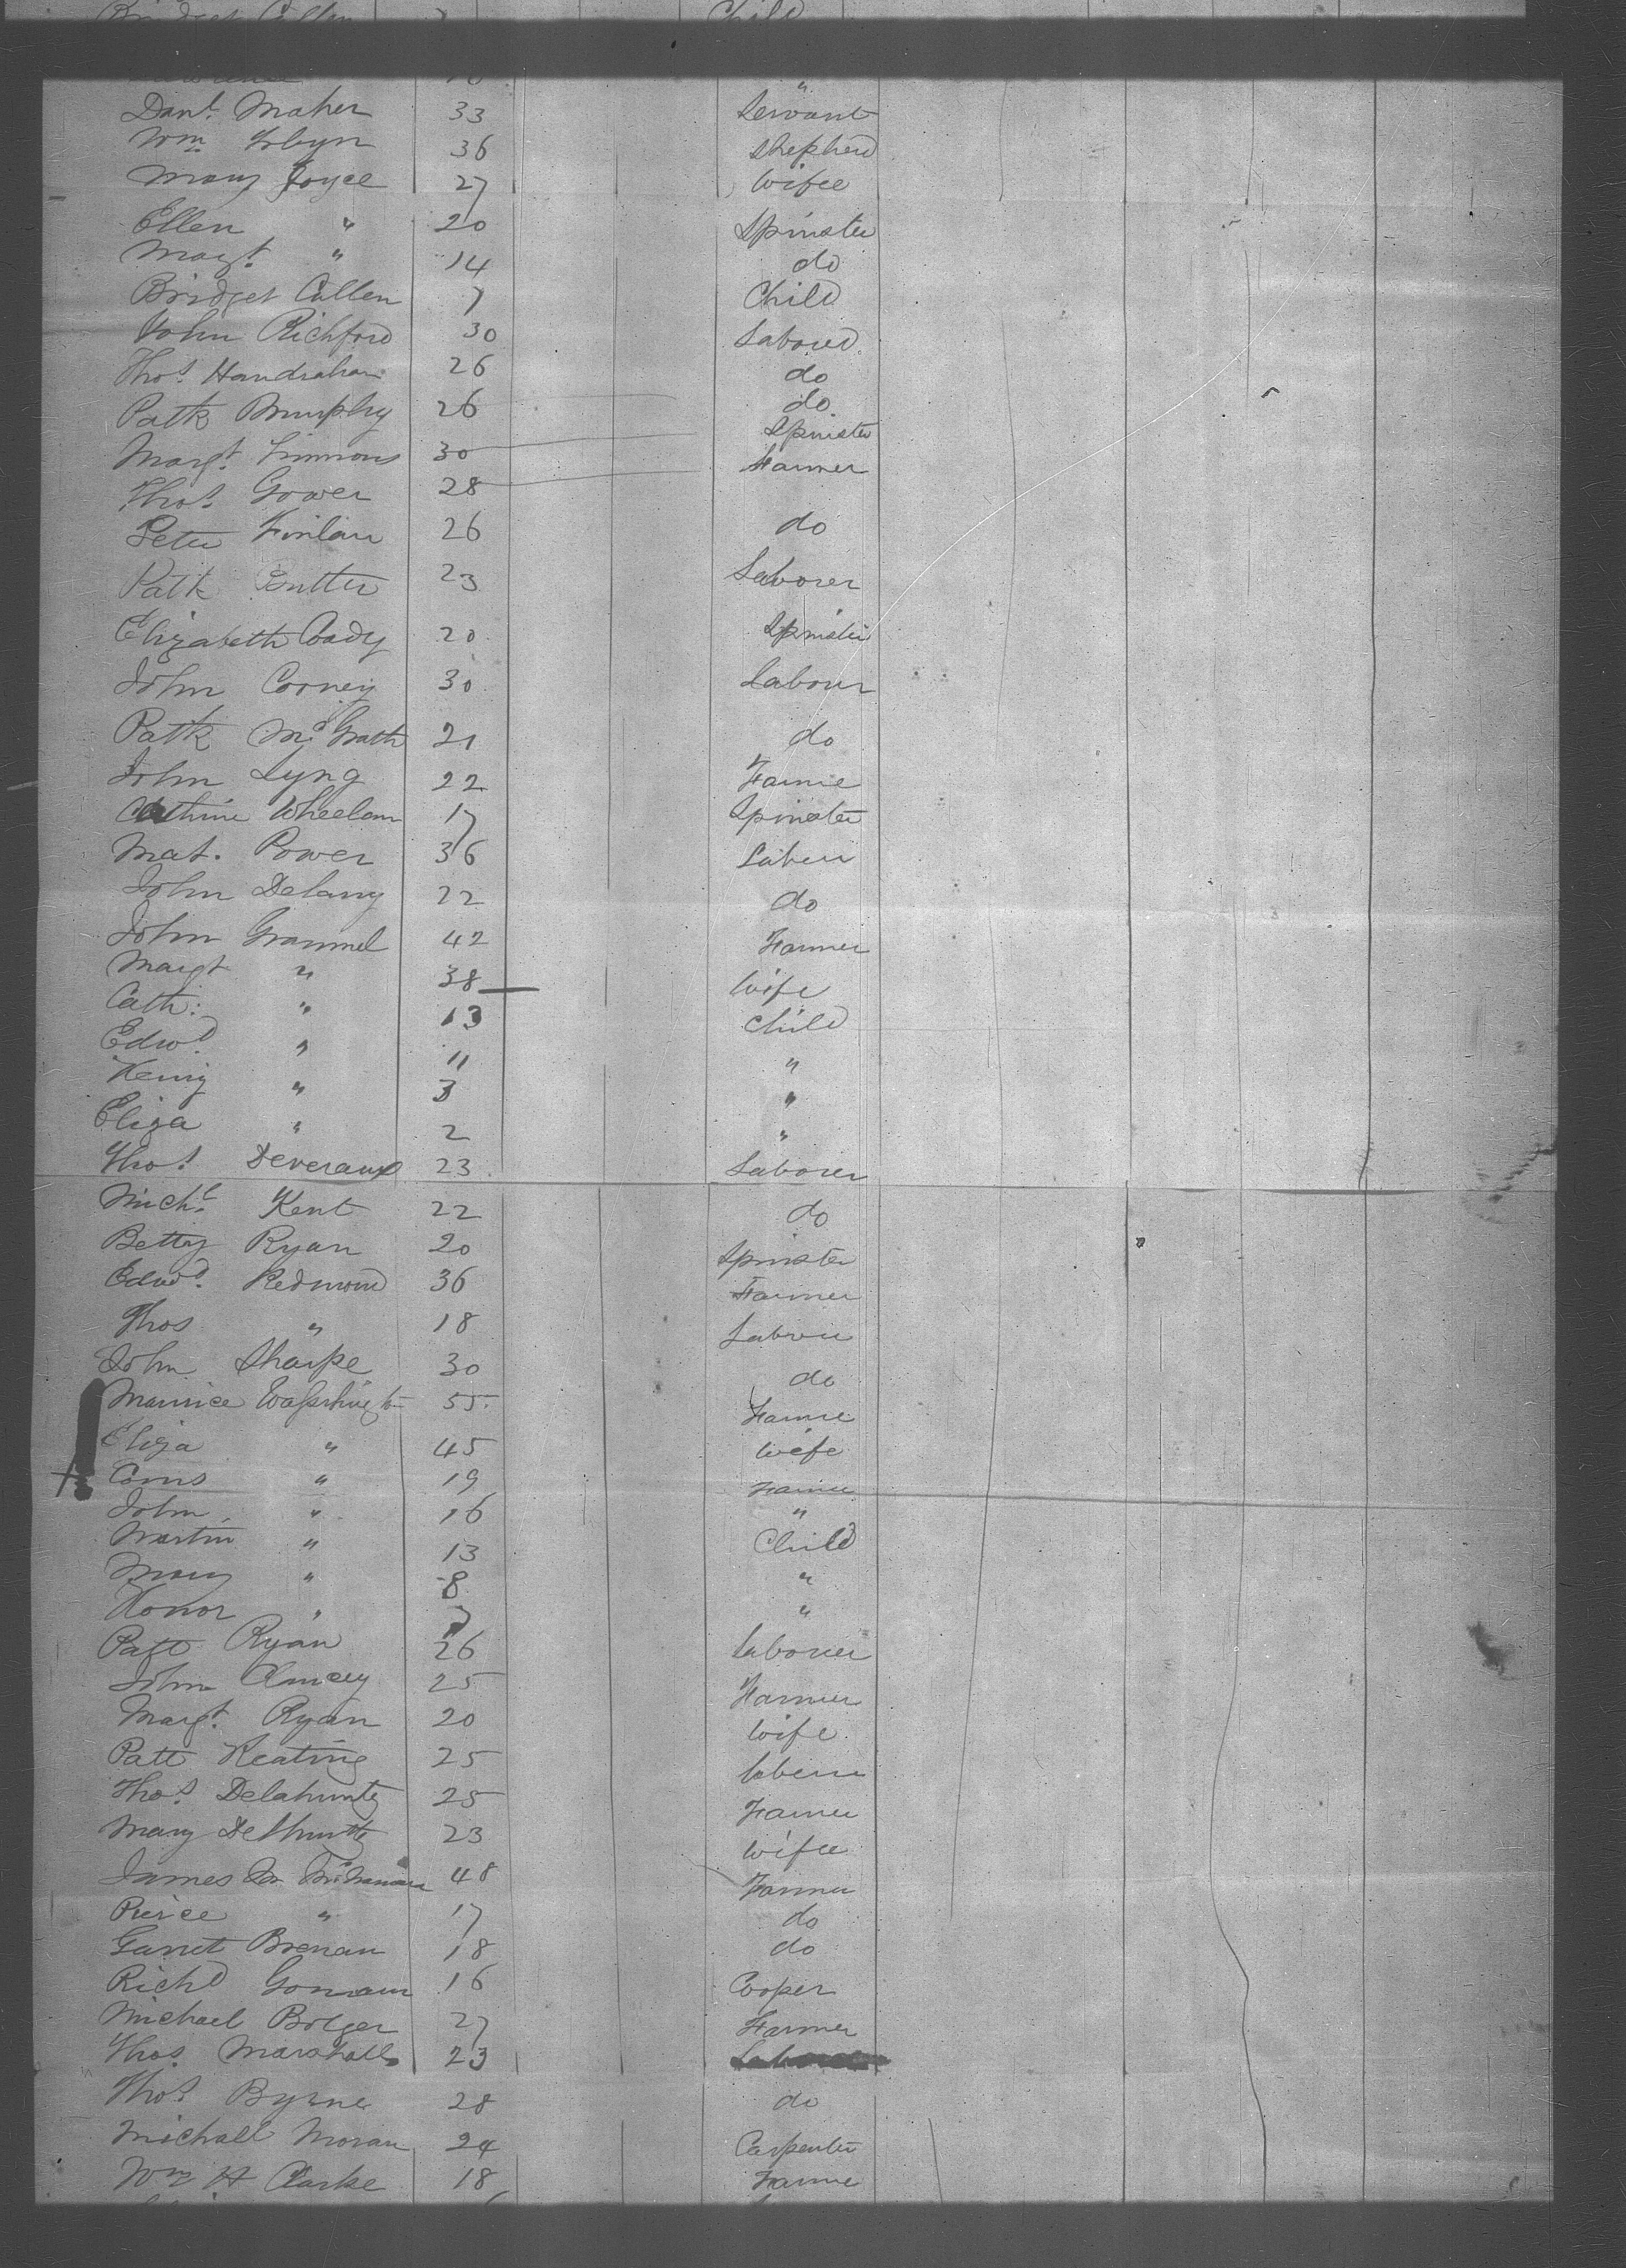 Bridget Cullen 7 Child
"
Danl. Maher 33 Servant
Wm. 36 Shepherd
Mary Joyce 27 Wife
Ellen " 20 Spinster
Margt. " 14 do
Bridget Cullen 7 Child
John Richford 30 Laborer
Thos. Handrahan 26 do
Patk Murphy 26 do
Margt. Simmons 30 Spinster
Thos. Gower 28 Farmer
Peter Finlan 26 do
Patk Butler 23 Laborer
Elizabeth Cody 20 Spinster
John Corney 30 Labour
Patk McGrath 21 do
John Lyng 22 Farmer
Cathrine Wheelan 17 Spinster
Mat. Power 36 Laborer
John Delany 22 do
John Grannel 42 Farmer
Margt " 38 Wife
Cath: " 13 Child
Edwd. " 11 "
Henry " 3 "
Eliza " 2 "
Thos. Deveraux 23 Laborer
Michl. Kent 22 do
Betty Ryan 20 Spinster
Edwd. Redmond 36 Farmer
Thos " 18 Laborer
John Sharpe 30 do
Maurice 55 Farmer
Eliza " 45 Wife
Corns " 19 Farmer
John " 16 "
Martin " 13 Child
Mary " 8 "
Honor " 7 "
Patt Ryan 26 Laborer
John Clancey 25 Farmer
Margt. Ryan 20 Wife
Patt Keating 25 Laborer
Thos. Delahunty 25 Farmer
Mary Delhunty 23 Wife
James McNamara 48 Farmer
Pierce " 17 do
Garret Brenan 18 do
Richd Gorman 16 Cooper
Michael Bolger 27 Farmer
Thos. Marshall 23 Laborer
Thos. Byrne 28 do
Michall Moran 24 Carpenter
Wm H Clarke 18 Farmer